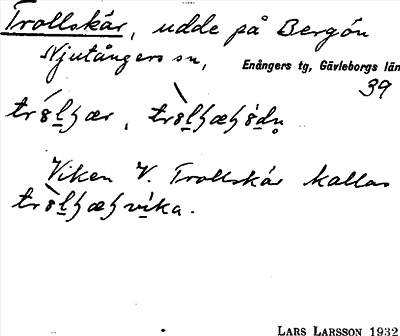 Trollskär, udde på Bergön
Njutångers sn,
Enångers tg, Gävleborgs län
39
Viken V. Trollskär kallas
LARS LARSSON 1932